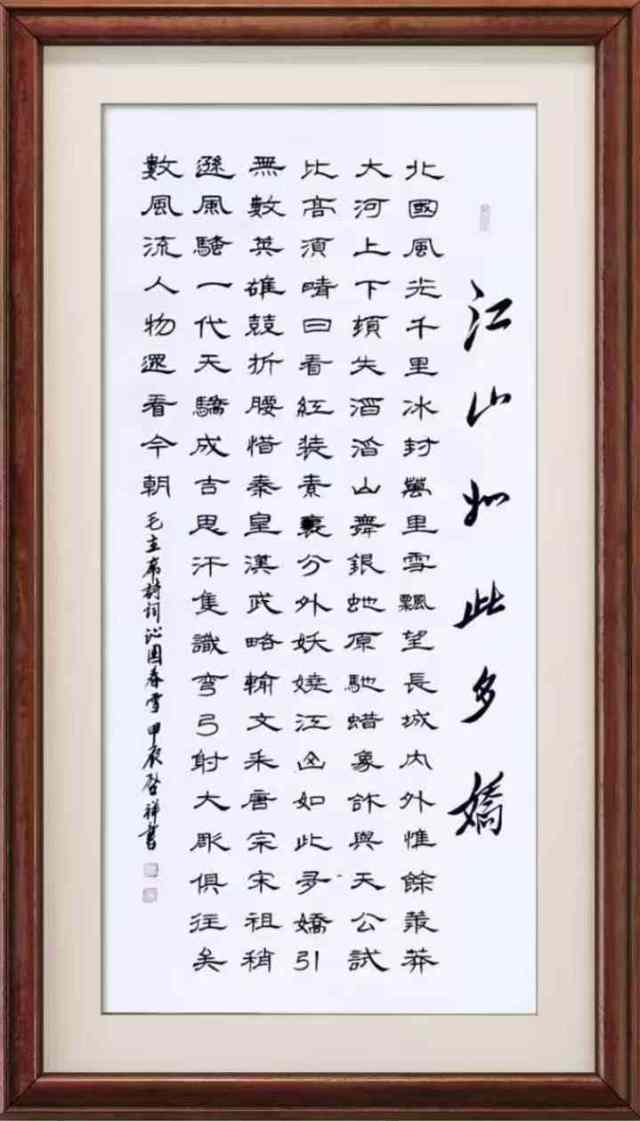 江山如此多嬌
北國風光千里冰封萬里雪飄望長城内外惟餘莽莽
大河上下頓失滔滔山舞銀虵原馳蜡象欲與天公試
比高須晴日看紅装素裹分外妖嬈江山如此多嬌引
無數英雄競折腰惜秦皇漢武略輸文采唐宗宋祖稍
遜風騷一代天驕成吉思汗隻識彎弓射大彫俱往矣
數風流人物還看今朝 毛主席詩詞沁園春雪甲辰啓祥書